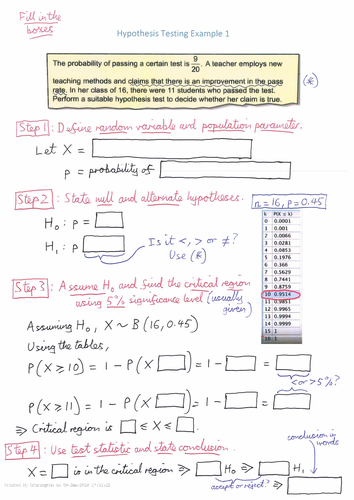 Fill in the
boxes
Hypothesis Testing Example 1
The probability of passing a certain test is 9/20. A teacher employs new
teaching methods and claims that there is an improvement in the pass
rate. In her class of 16, there were 11 students who passed the test.
Perform a suitable hypothesis test to decide whether her claim is true.
(*)
Step 1: Define random variable and population parameter.
Let X =
p = probability of
Step 2: State null and alternate hypotheses.
n=16, p=0.45
H₀ : p =
H₁ : p
Is it <, > or ≠?
Use (*)
k P(X ≤ k)
0 0.0001
1 0.001
2 0.0066
3 0.0281
4 0.0853
5 0.1976
6 0.366
7 0.5629
8 0.7441
9 0.8759
10 0.9514
11 0.9851
12 0.9965
13 0.9994
14 0.9999
15 1
16 1
Step 3: Assume H₀ and find the critical region
using 5% significance level (usually
given)
Assuming H₀, X ~ B(16, 0.45)
Using the tables,
P(X ≥ 10) = 1 - P(X ) = 1 - =
< or > 5%?
P(X ≥ 11) = 1 - P(X ) = 1 - =
⇒ Critical region is ≤ X ≤ .
Step 4: Use test statistic and state conclusion.
conclusion in
words
X = is in the critical region ⇒ H₀ ⇒ H₁
accept or reject?